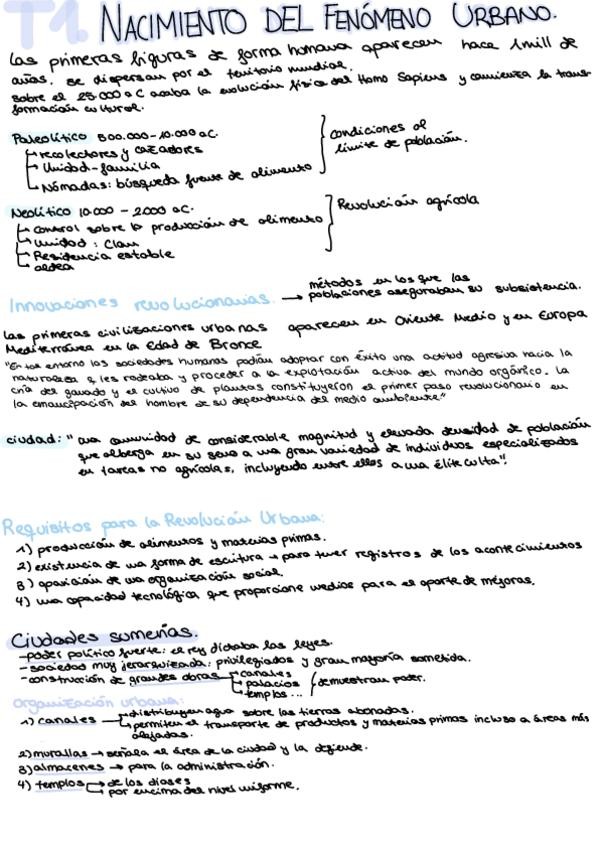 T1. NACIMIENTO DEL FENÓMENO URBANO.
Las primeras figuras de forma humana aparecen hace 1 mill de
años. Se dispersan por el territorio mundial.
Sobre el 25.000 a C acaba la evolución física del Homo Sapiens y comienza la trans-
formación cultural.
Paleolítico 500.000-10.000 a.C.
recolectores y cazadores
Unidad-familia
Nómadas: búsqueda fuente de alimento
condiciones al
límite de población.
Neolítico 10.000 - 2000 a.C.
control sobre la producción de alimento
Unidad: Clan
Residencia estable
aldea
Revolución agrícola
Innovaciones revolucionarias. → métodos en los que las
poblaciones aseguraban su subsistencia.
Las primeras civilizaciones urbanas aparecen en Oriente Medio y en Europa
Mediterránea en la Edad de Bronce
"En tal entorno las sociedades humanas podían adoptar con éxito una actitud agresiva hacia la
naturaleza q les rodeaba y proceder a la explotación activa del mundo orgánico. La
cría del ganado y el cultivo de plantas constituyeron el primer paso revolucionario en
la emancipación del hombre de su dependencia del medio ambiente"
ciudad: "una comunidad de considerable magnitud y elevada densidad de población
que alberga en su seno a una gran variedad de individuos especializados
en tareas no agrícolas, incluyendo entre ellos a una élite culta".
Requisitos para la Revolución Urbana:
1) producción de alimentos y materias primas.
2) existencia de una forma de escritura → para tener registros de los acontecimientos
3) aparición de una organización social.
4) una capacidad tecnológica que proporcione medios para el aporte de mejoras.
Ciudades sumerias.
-poder político fuerte: el rey dictaba las leyes.
-sociedad muy jerarquizada: privilegiados y gran mayoría sometida.
-construcción de grandes obras → canales
palacios
templos...
demuestran poder.
Organización urbana:
1) canales → distribuyen agua sobre las tierras abonadas.
permiten el transporte de productos y materias primas incluso a áreas más
alejadas.
2) murallas → señala el área de la ciudad y la defiende.
3) almacenes → para la administración.
4) templos → de los dioses
por encima del nivel uniforme.